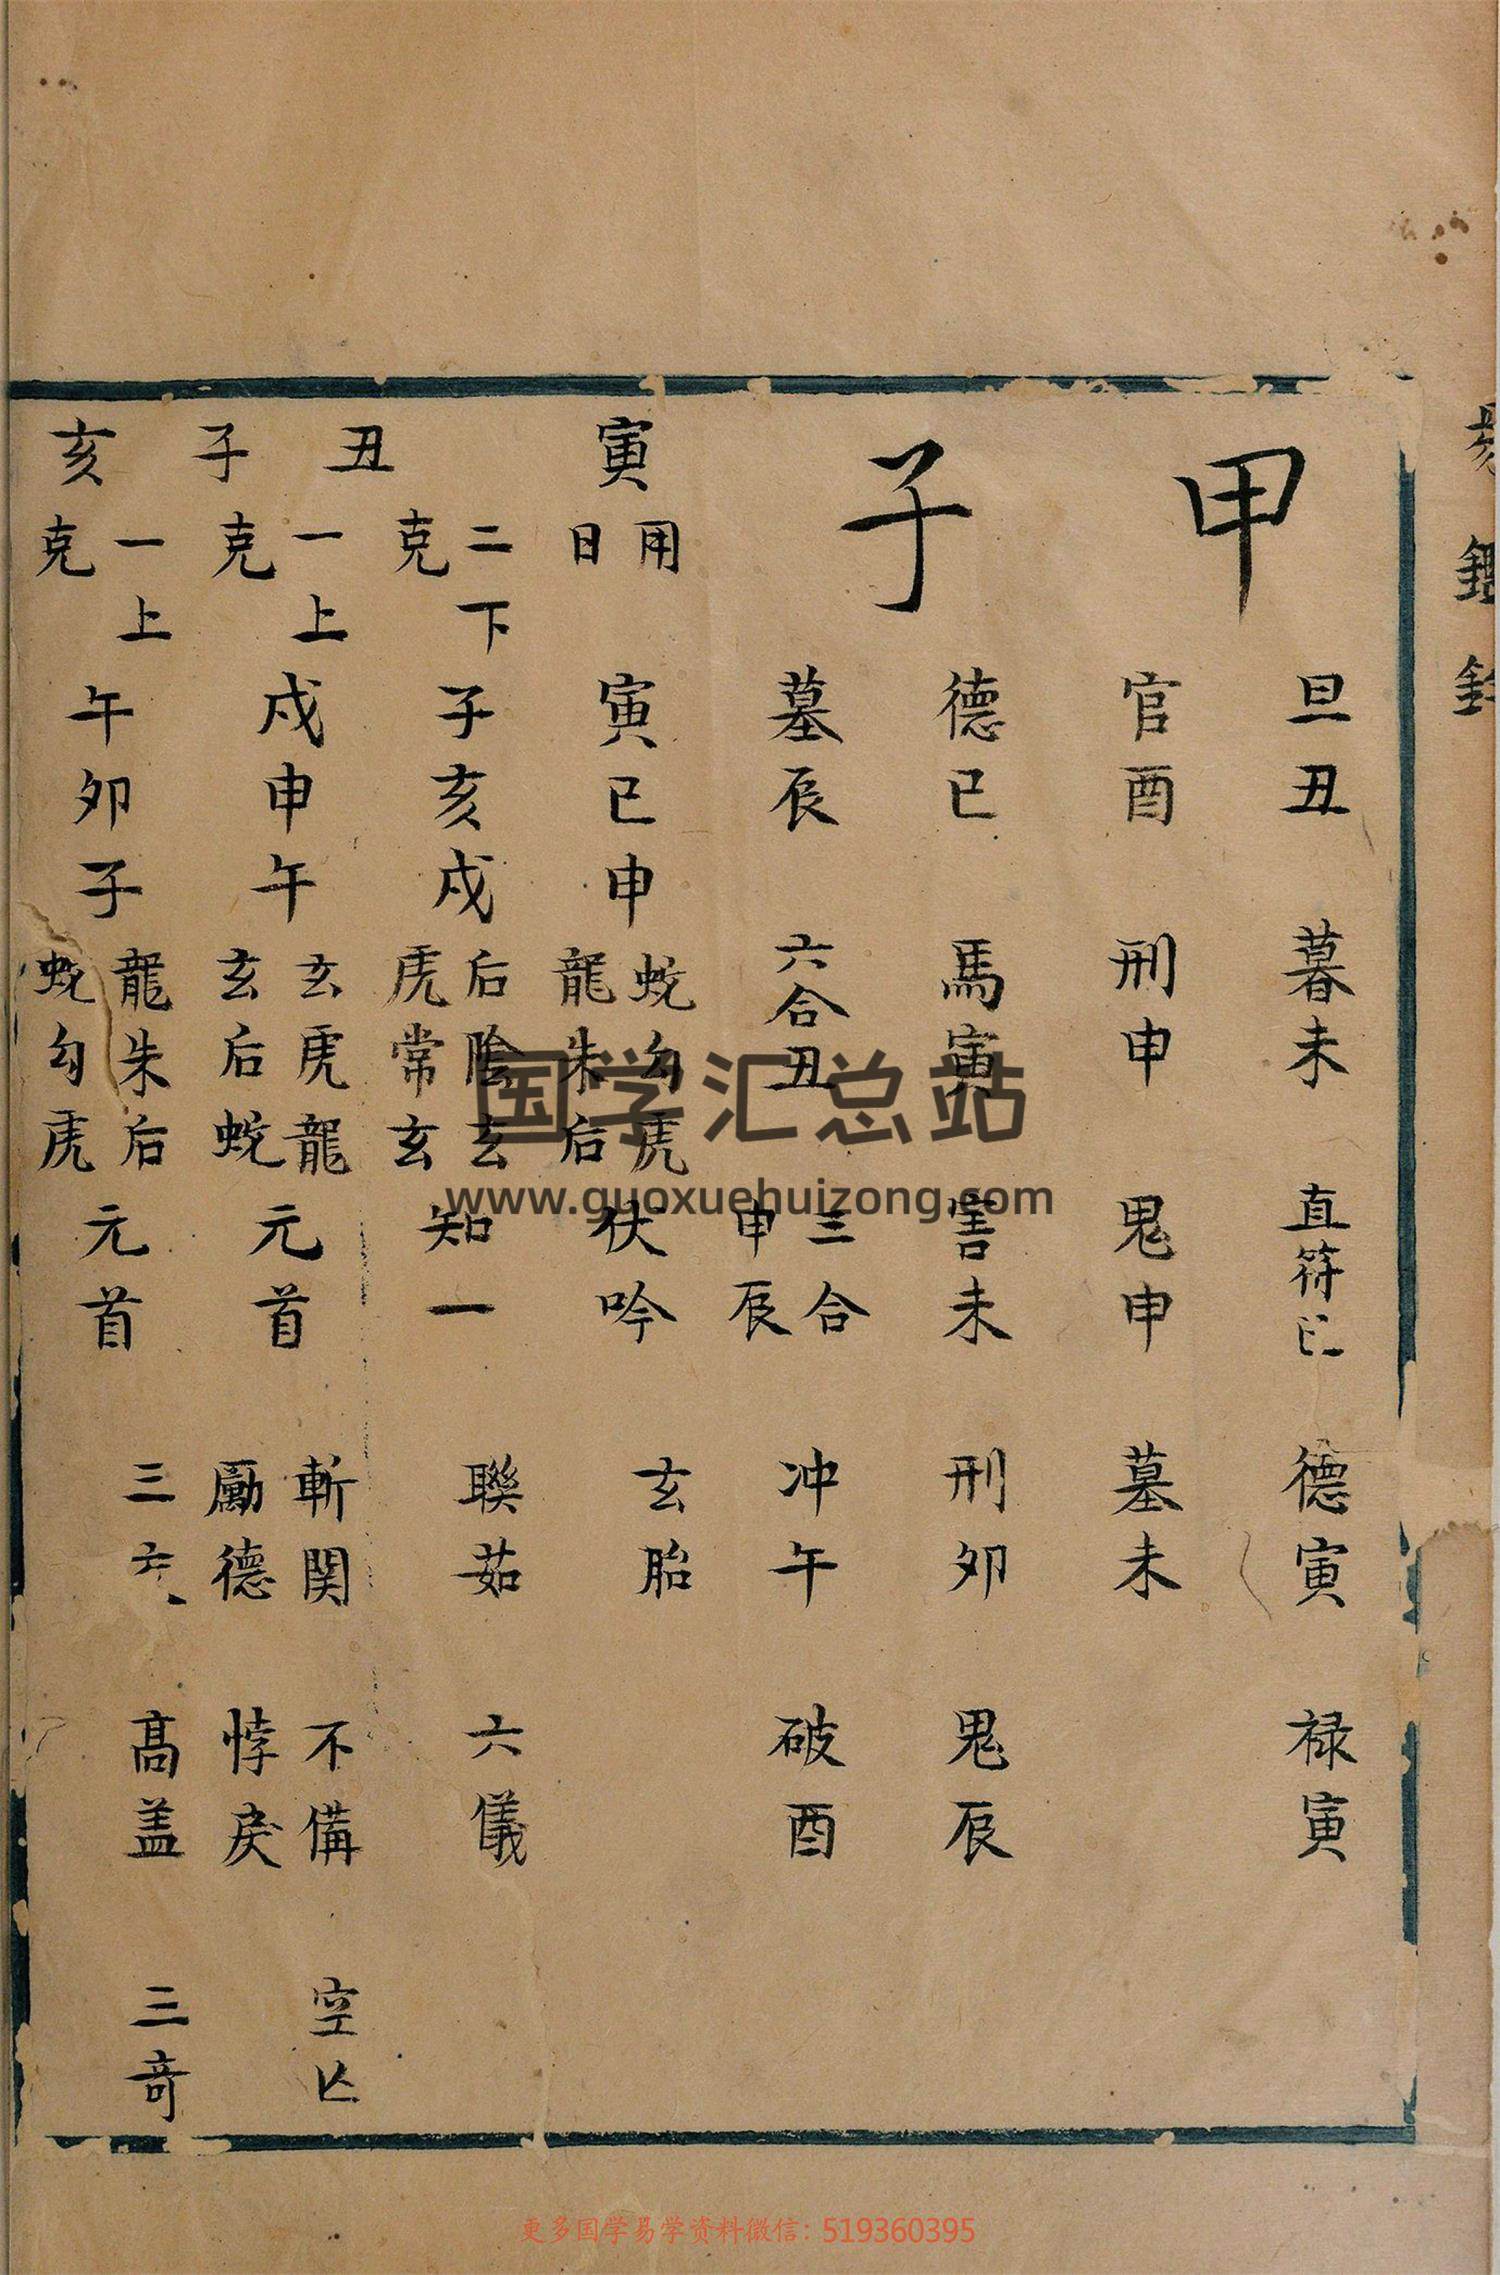 甲
旦丑 暮未 直符巳 德寅 禄寅
官酉 刑申 鬼申 墓未
子
德巳 馬寅 害未 刑卯 鬼辰
墓辰 六合丑 三合申辰 冲午 破酉
寅 用日 寅巳申 蛇勾虎 龍朱后 伏吟 玄胎
丑 二下克 子亥戌 后陰玄 虎常玄 知一 聯茹 六儀
子 一上克 戌申午 玄虎龍 玄后蛇 元首 斬関 勵德 不備 悖戾 空亾
亥 一上克 午卯子 龍朱后 蛇勾虎 元首 三 高盖 三竒
国学汇总站
www.guoxuehuizong.com
更多国学易学资料微信：519360395